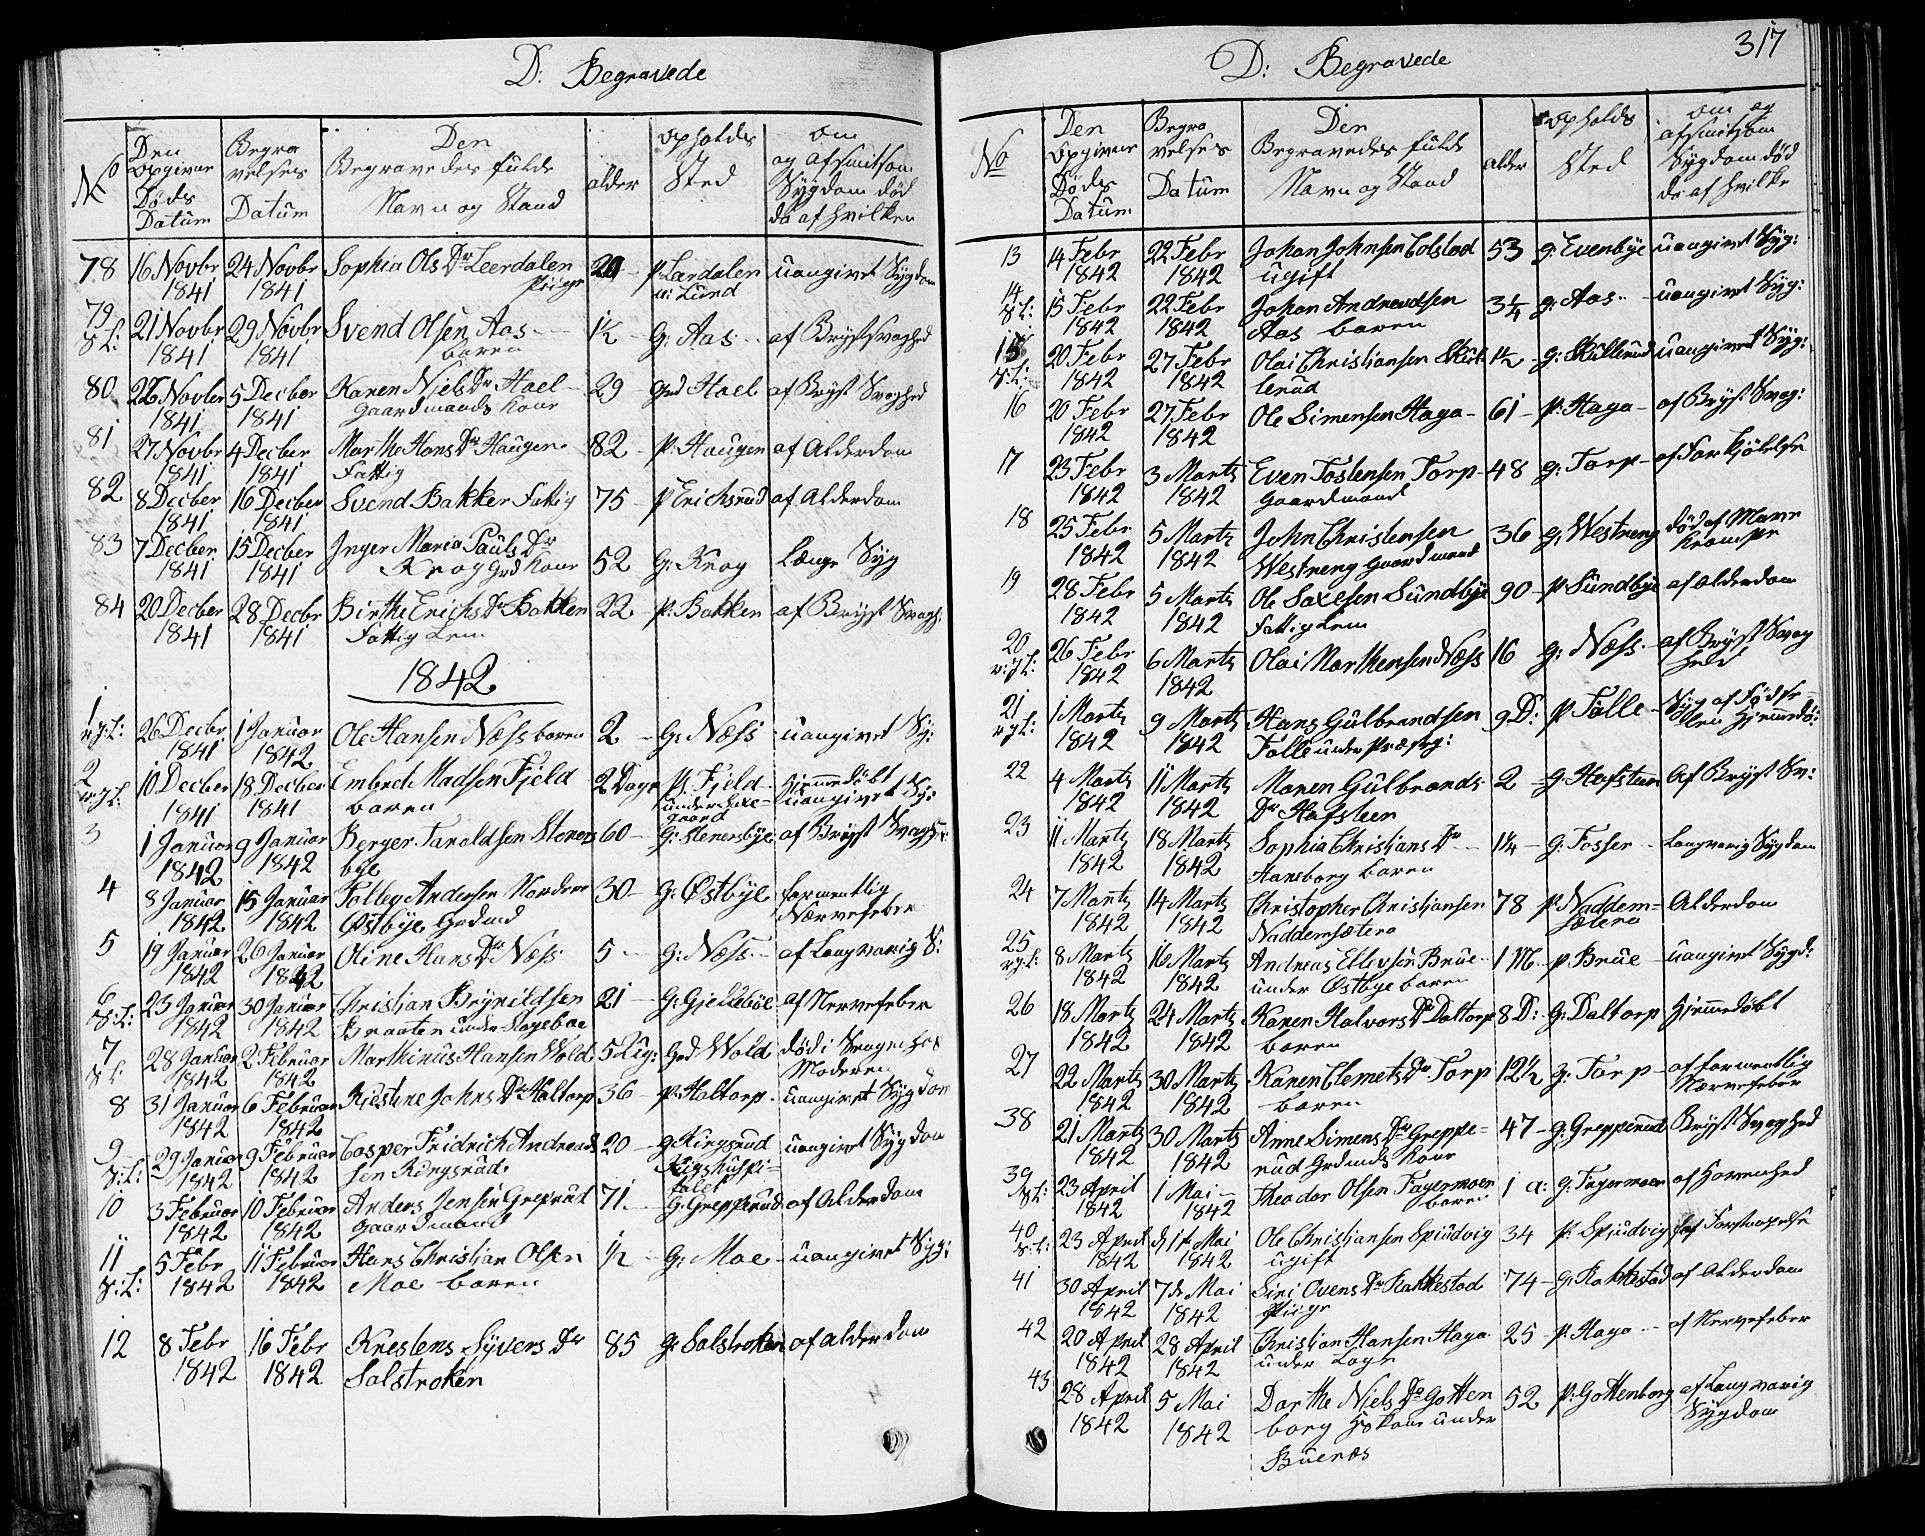 D: Begravede
No
Den opgivne Døds Datum
Begravelses Datum
Den Begravedes fulde Navn og Stand
alder
opholds Sted
om og af smitsom Sygdom død da af hvilken
78 16 Novbr 1841 24 Novbr 1841 Sophia Ols Dr Leerdalen Piige p Lardalen u: Lund uangivet Sygdom
79 S:L: 21 Novbr 1841 29 Novbr 1841 Svend Olsen Aas baren 1½ G: Aas af Brystsvaghed
80 26 Novbr 1841 5 Decber 1841 Karen Niels Dr Hael Gaardmands Kone 29 Grd Hael af Bryst Svaghed
81 27 Novbr 1841 4 Decber 1841 Marthe Hans Dr Haugen Fattig 82 P: Haugen af Alderdom
82 8 Decber 1841 16 Decber 1841 Svend Bakker Fattig 75 p Erichsrud af Alderdom
83 7 Decber 1841 15 Decber 1841 Inger Maria Pauls Dr Krog Grd Kone 52 G: Krog Længe Syg
84 20 Decber 1841 28 Decbr 1841 Birthe Erichs Dr Bakken Fattig Lem 22 P. Bakken af Bryst Svagh:
1842
1 v:g:L: 26 Decbr 1841 1 Januar 1842 Ole Hansen Næss baren 2 G: Næss uangivet Sy:
2 v:g:L: 10 Decber 1841 18 Decber 1841 Embret Madsen Fjeld baren 2 Dage p. Fjeld under Hjemmedøbt uangivet Sy:
3 1 Januar 1842 9 Januar 1842 Berger Taraldsen Stenersbye 60 G: Stenersbye af Bryst Svagh
4 8 Januar 1842 15 Januar 1842 Tolleg Andersen Nordre Østbye Grdmd 30 G: Østbye formentlig Nærvefeber
5 19 Januar 1842 26 Januar 1842 Oline Hans Dr Næss 5 G: Næss af Langvarig S:
6 S:L: 23 Januar 1842 30 Januar 1842 Christian Brynildsen Braaten under 21 G: Gjellebøe af Nervefeber
7 S:L: 28 Januar 1842 2 Februar 1842 Marthinus Hansen Wold 5 Ug: Grd Wold død i Moderen
8 31 Januar 1842 6 Februar 1842 Kiestine Johns Dr Haltorp 36 P. Holtorp uangivet Sygdom
9 S:L: 29 Januar 1842 9 Februar 1842 Casper Fridrich Andreadsen Ringsrud 20 g Ringsrud Rigshuspitalet uangivet Sygdom
10 3 Februar 1842 10 Februar 1842 Anders Jensen Greprud Gaardmand 71 G. Grepperud af Alderdom
11 S:L: 5 Febr 1842 11 Februar 1842 Hans Christian Olsen Moe baren ½ G: Moe uangivet Syg:
12 8 Febr 1842 16 Febr 1842 Krestens Syvers Dr Solstroken 85 g: Solstroken af alderdom
317
D: Begravede
No
Den opgivne Døds Datum
Begravelses Datum
Den Begravedes fulde Navn og Stand
alder
opholds Sted
om og af smitsom Sygdom død da af hvilke
13 14 Febr 1842 22 Febr 1842 Johan Johnsen Colstad ugift 53 g: Evenbye uangivet Syg:
14 S:L: 15 Febr 1842 22 Febr 1842 Johan Andreadsen Aas baren 3¼ g: Aas uangivet Syg:
15 S:L: 20 Febr 1842 27 Febr 1842 Olai Christiansen Skullerud 1½ g: Skullerud uangivet Syg:
16 20 Febr 1842 27 Febr 1842 Ole Simensen Haga 61 p: Haga af Bryst Svag:
17 23 Febr 1842 3 Marts 1842 Even Tostensen Torp Gaardmand 48 g: Torp af Forkjølelse
18 25 Febr 1842 5 Marts 1842 John Christensen Westreng Gaardmand 36 g: Westreng død af Mave Krampe
19 28 Febr 1842 5 Marts 1842 Ole Saxesen Sundbye Fattiglem 90 p Sundbye af alderdom
20 v:g:L: 26 Febr 1842 6 Marts 1842 Olai Marthensen Næss 16 g: Næss af Bryst Svaghed
21 v:g:L: 1 Marts 1842 9 Marts 1842 Hans Gulbrandsen Falle under Præsteg: 9 D: p Falle Syg af Fødselen Hjemmedø:
22 4 Marts 1842 11 Marts 1842 Maren Gulbrands Dr Hafsteen 2 G: Hafsteen Af Bryst Sv:
23 11 Marts 1842 18 Marts 1842 Sophia Christians Dr Hansborg baren 1¼ G: Fosser Langvarig Sygdom
24 7 Marts 1842 14 Marts 1842 Christopher Christiansen Naddemsætera 78 p Naddemsætera Alderdom
25 v:g:L: 8 Marts 1842 16 Marts 1842 Andreas Ellevsen Brue under Østbye baren 1 M p Brue uangivet Sygd:
26 18 Marts 1842 24 Marts 1842 Karen Halvors Dr Daltorp baren 8 D: G: Daltorp Hjemmedøbt
27 22 Marts 1842 30 Marts 1842 Karen Clemets Dr Torp baren 12½ g: Torp af formentlig Nærvefeber
38 21 Marts 1842 30 Marts 1842 Anne Simens Dr Grepperud Grdmds Kone 47 g: Grepperud Bryst Svaghed
39 S:L: 23 April 1842 1 Mai 1842 Theodor Olsen Fagermoen baren 1 a: g: Fagermoen af
40 S:L: 23 April 1842 d 1ste Mai 1842 Ole Christiansen Spiudvig ugift 34 p: Spiudvig af Forstoppelse
41 30 April 1842 7de Mai 1842 Siri Ovens Dr Rakkestad Piige 74 g: Rakkestad af Alderdom
42 20 April 1842 28 April 1842 Christian Hansen Haga under 25 p. Haga af Nervefeber
43 28 April 1842 5 Mai 1842 Dorthe Niels Dr Gottenborg under Buenæs 52 p: Gottenborg af Langvarig Sygdom